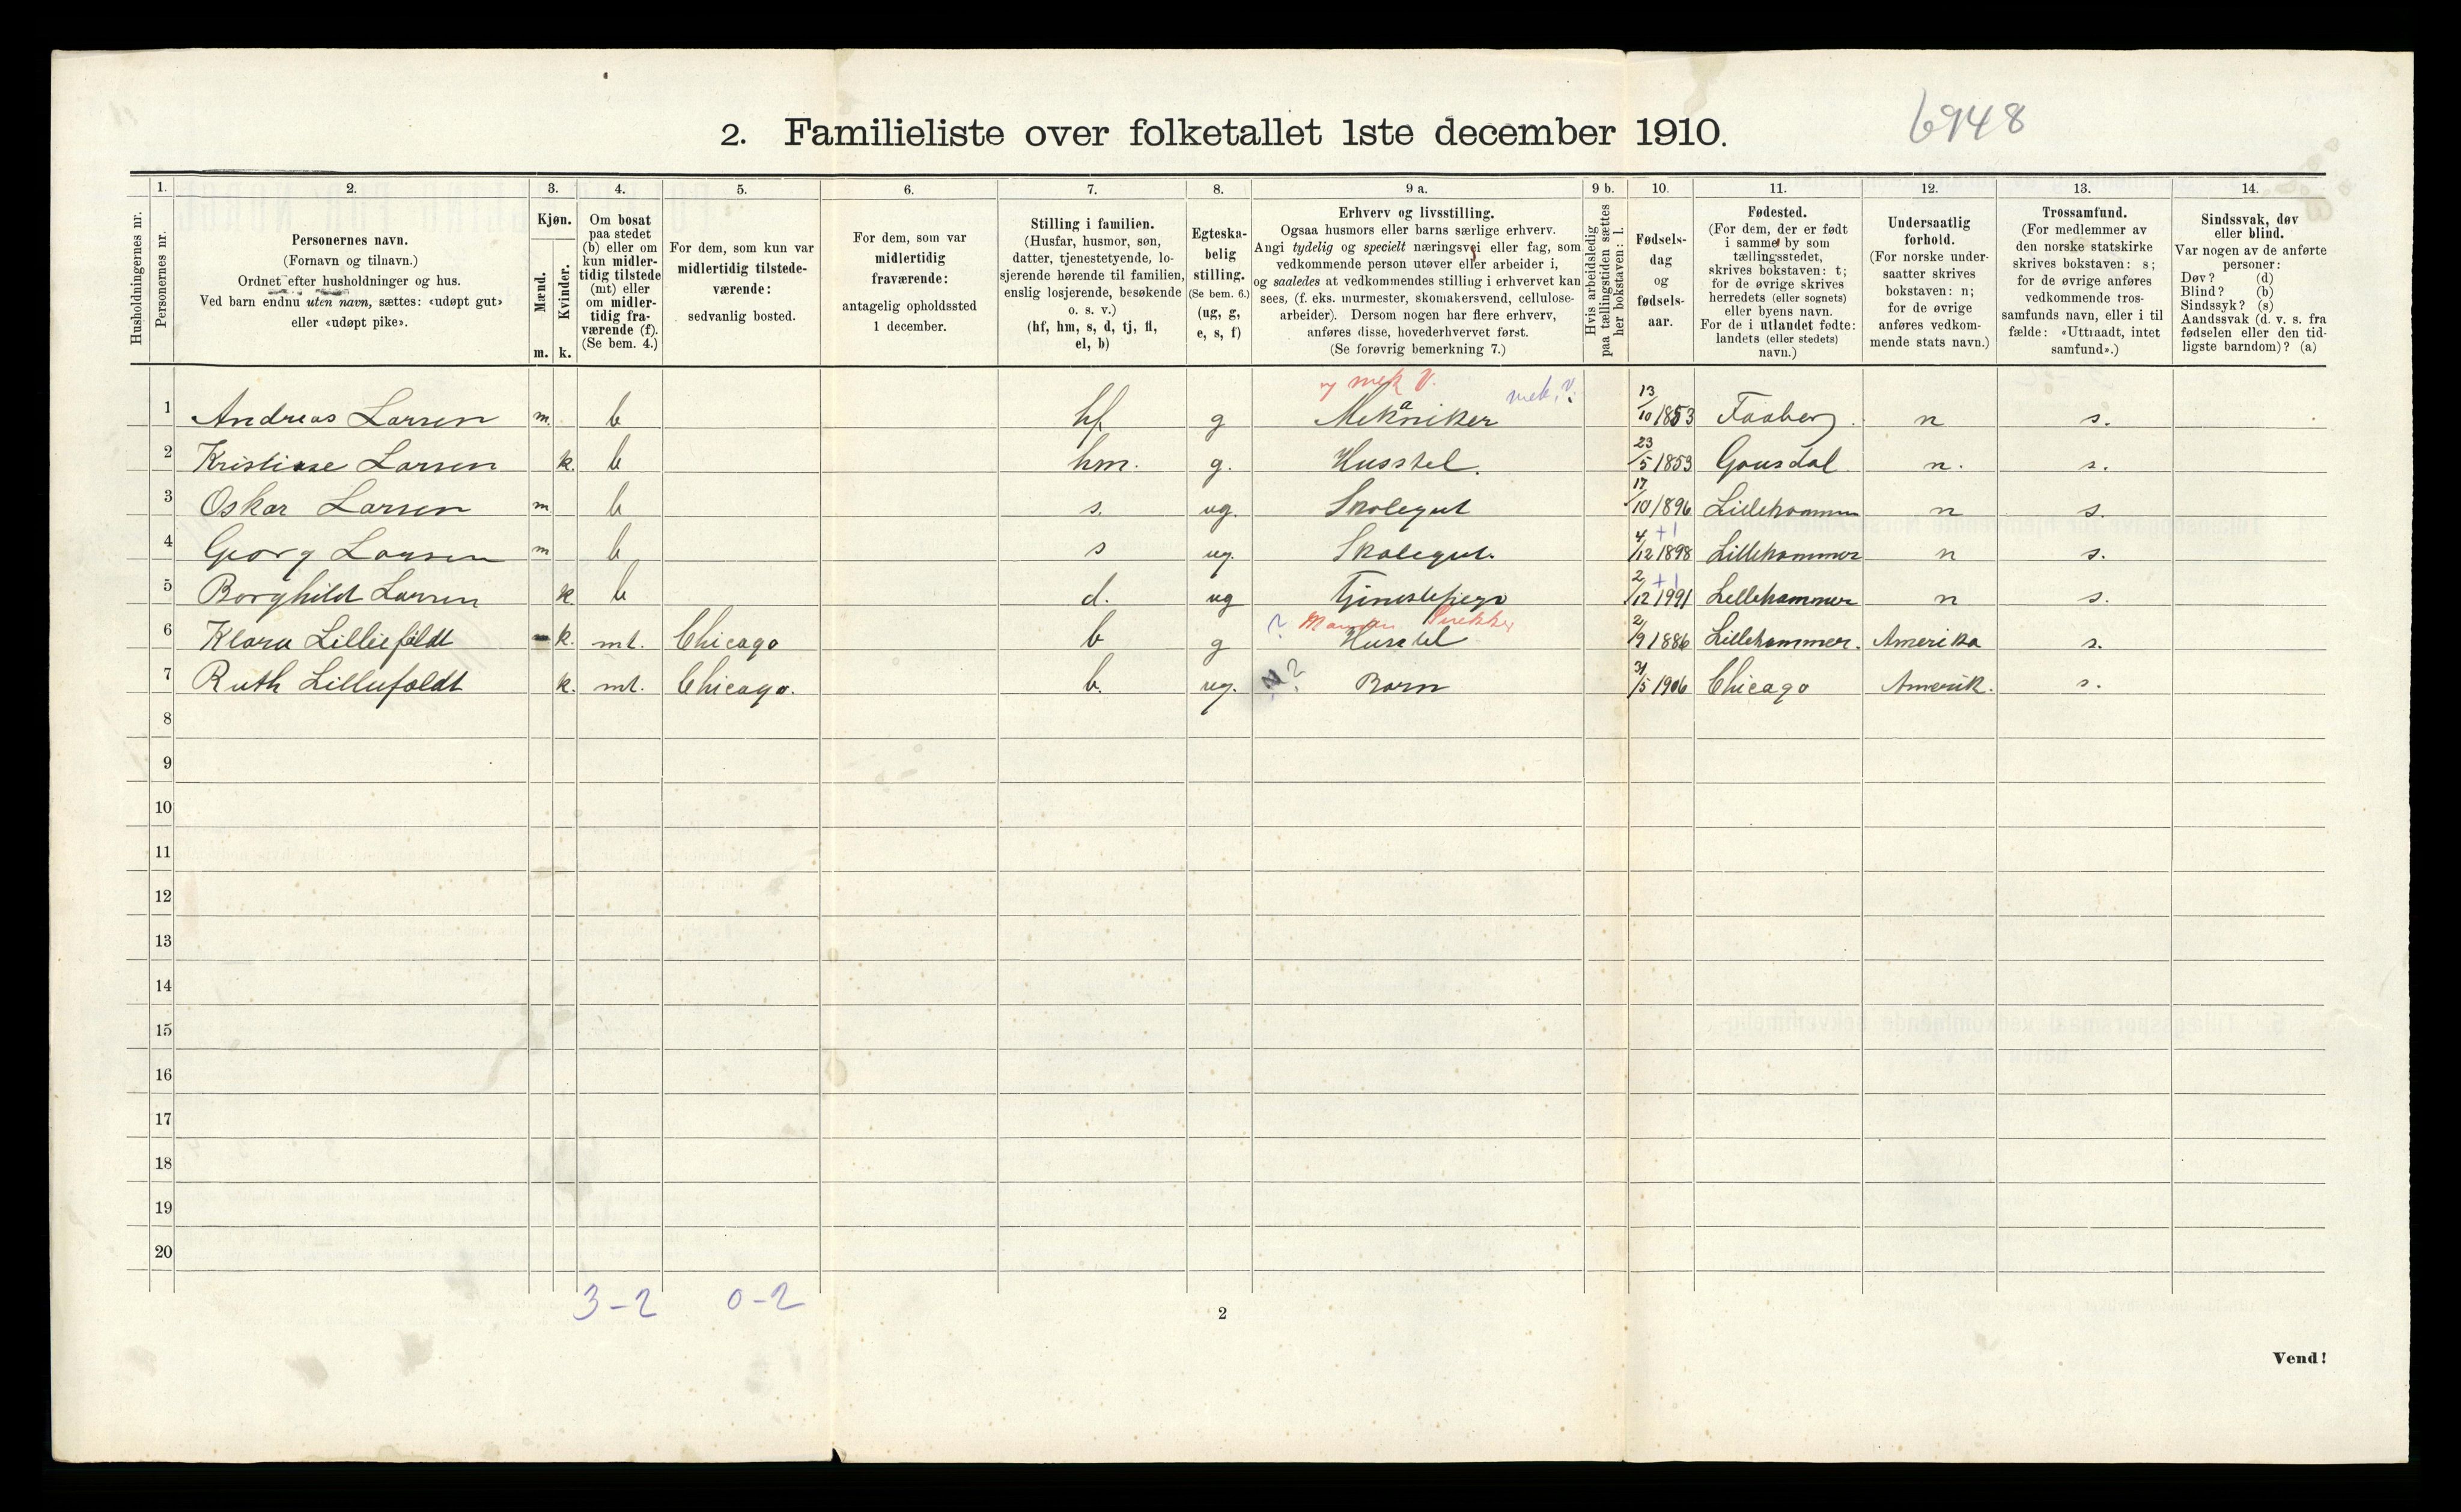 6948
2. Familieliste over folketallet 1ste december 1910.
Husholdningernes nr.
1. Personernes nr.
2. Personernes navn.
(Fornavn og tilnavn.)
Ordnet efter husholdninger og hus.
Ved barn endnu uten navn, sættes: «udøpt gut»
eller «udøpt pike».
3. Kjøn.
Mænd. m.
Kvinder. k.
4. Om bosat
paa stedet
(b) eller om
kun midler-
tidig tilstede
(mt) eller
om midler-
tidig fra-
værende (f).
(Se bem. 4.)
5. For dem, som kun var
midlertidig tilstede-
værende:
sedvanlig bosted.
6. For dem, som var
midlertidig
fraværende:
antagelig opholdssted
1 december.
7. Stilling i familien.
(Husfar, husmor, søn,
datter, tjenestetyende, lo-
sjerende hørende til familien,
enslig losjerende, besøkende
o. s. v.)
(hf, hm, s, d, tj, fl,
el, b)
8. Egteska-
belig
stilling.
(Se bem. 6.)
(ug, g,
e, s, f)
9 a. Erhverv og livsstilling.
Ogsaa husmors eller barns særlige erhverv.
Angi tydelig og specielt næringsvei eller fag, som
vedkommende person utøver eller arbeider i,
og saaledes at vedkommendes stilling i erhvervet kan
sees, (f. eks. murmester, skomakersvend, cellulose-
arbeider). Dersom nogen har flere erhverv,
anføres disse, hovederhvervet først.
(Se forøvrig bemerkning 7.)
9 b. Hvis arbeidsledig
paa tællingstiden sættes
her bokstaven: l.
10. Fødsels-
dag
og
fødsels-
aar.
11. Fødested.
(For dem, der er født
i samme by som
tællingsstedet,
skrives bokstaven: t;
for de øvrige skrives
herredets (eller sognets)
eller byens navn.
For de i utlandet fødte:
landets (eller stedets)
navn.)
12. Undersaatlig
forhold.
(For norske under-
saatter skrives
bokstaven: n;
for de øvrige
anføres vedkom-
mende stats navn.)
13. Trossamfund.
(For medlemmer av
den norske statskirke
skrives bokstaven: s;
for de øvrige anføres
vedkommende tros-
samfunds navn, eller i til
fælde: «Uttraadt, intet
samfund».)
14. Sindssvak, døv
eller blind.
Var nogen av de anførte
personer:
Døv? (d)
Blind? (b)
Sindssyk? (s)
Aandssvak (d. v. s. fra
fødselen eller den tid-
ligste barndom)? (a)
mek V. mek. V.
1 Andreas Larsen m. b hf g Mekaniker 13/10 1853 Faaberg n s.
2 Kristine Larsen k. b hm. g. Husstel. 23/5 1853 Gausdal n. s.
3 Oskar Larsen m b s. ug. Skolegut 17/10 1896 Lillehammer n s.
+1
4 Georg Larsen m b s ug. Skolegut. 4/12 1898 Lillehammer n s.
+1
5 Borghild Larsen k. b d. ug Tjenestepige 2/12 1991 Lillehammer n s.
? Manden Snekker
6 Klara Lilliefeldt k. mt. Chicago b g Husstel 2/9 1886 Lillehammer. Amerika s.
7 Ruth Lilliefoldt k. mt. Chicago. b. ug. N? Barn 31/5 1906 Chicago Amerik. s.
8
9
10
11
12
13
14
15
16
17
18
19
20
3-2 0-2
2
Vend!